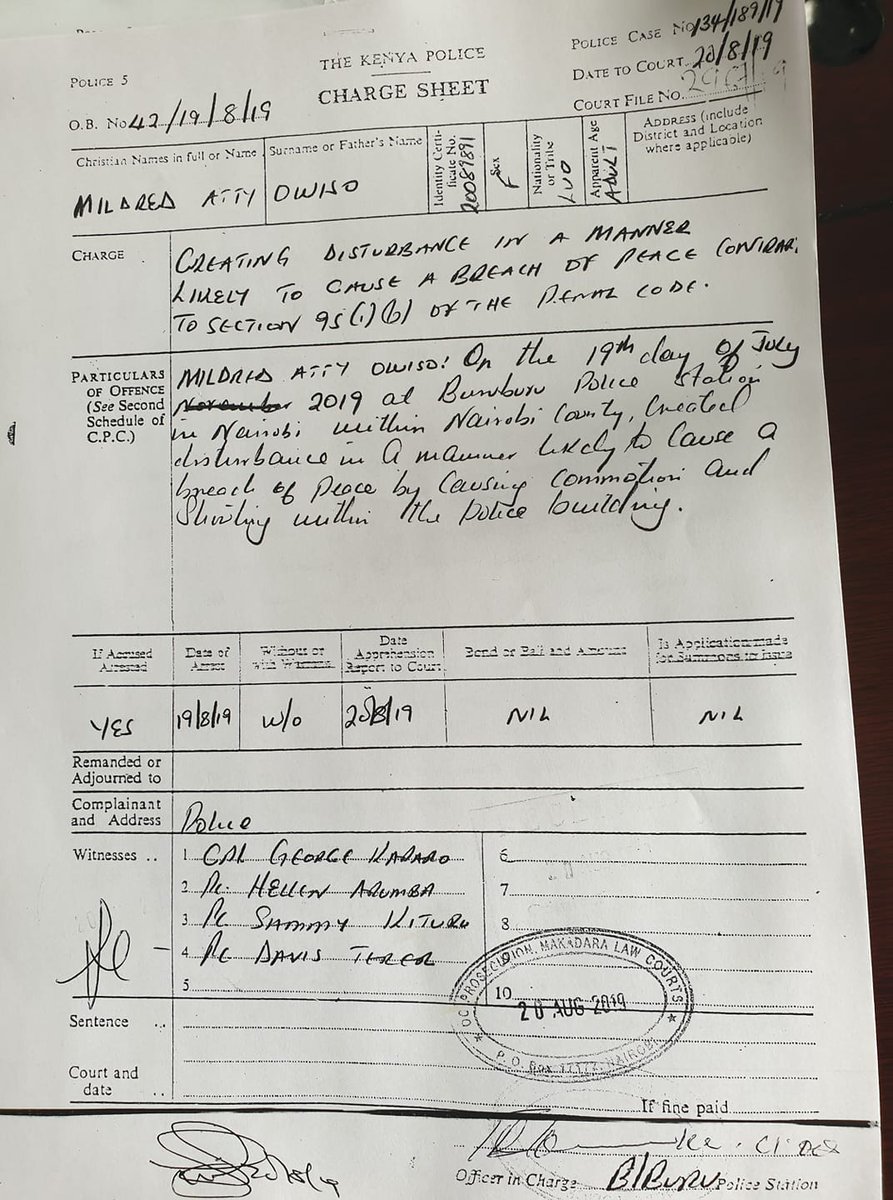 POLICE 5
THE KENYA POLICE
CHARGE SHEET
POLICE CASE No 134/189/19
DATE TO COURT 20/8/19
COURT FILE No.
O.B. No 42/19/8/19
Christian Names in full or Name
Surname or Father's Name
Identity Certi-
ficate No.
20089891
Sex
F
Nationality
or Tribe
LUO
Apparent Age
ADULT
ADDRESS (include
District and Location
where applicable)
MILDRED ATTY
OWISO
CHARGE
CREATING DISTURBANCE IN A MANNER
LIKELY TO CAUSE A BREACH OF PEACE CONTRAR
TO SECTION 95(1)(b) OF THE PENAL CODE.
PARTICULARS
OF OFFENCE
(See Second
Schedule of
C.P.C.)
MILDRED ATTY OWISO: On the 19th day of July
November 2019 at Buruburu Police Station
in Nairobi within Nairobi County, Created
disturbance in a manner likely to cause a
breach of peace by causing commotion and
Shouting within the police building.
If Accused
Arrested
Date of
Arrest
Without or
with Warrant
Date
Apprehension
Report to Court
Bond or Bail and Amount
Is Application made
for Summons to Issue
YES
19/8/19
W/O
20/8/19
NIL
NIL
Remanded or
Adjourned to
Complainant
and Address
Police
Witnesses ..
1 CPL GEORGE KARARO
2 Pc. HELLEN ARUMBA
3 Pc SAMMY KITURU
4 Pc DAVIS TERER
5
6
7
8
9
10
OC PROSECUSION, MAKADARA LAW COURTS
20 AUG 2019
P. O. Box NAIROBI
Sentence ..
Court and
date ..
If fine paid
Officer in Charge B/BURU Police Station